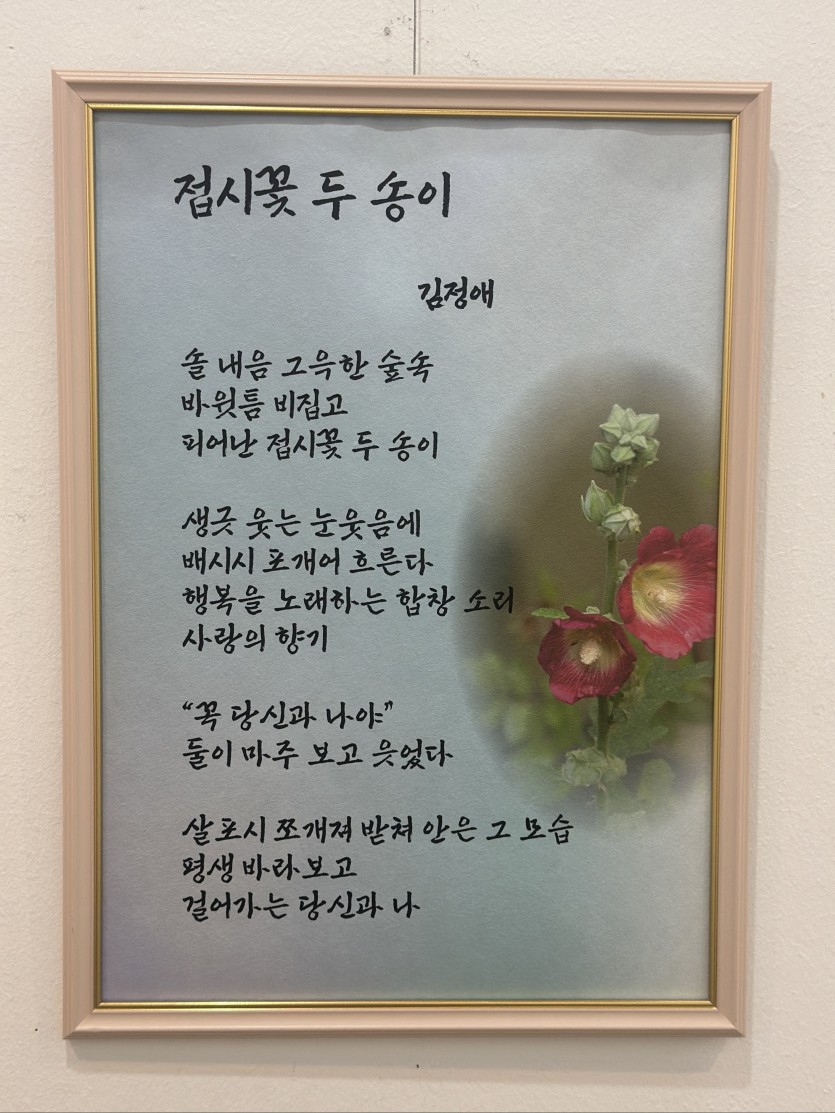 접시꽃 두 송이
김정애
솔 내음 그윽한 숲속
바윗틈 비집고
피어난 접시꽃 두 송이
생긋 웃는 눈웃음에
배시시 포개어 흐른다
행복을 노래하는 합창 소리
사랑의 향기
“꼭 당신과 나야”
둘이 마주 보고 웃었다
살포시 쪼개져 받쳐 안은 그 모습
평생 바라보고
걸어가는 당신과 나